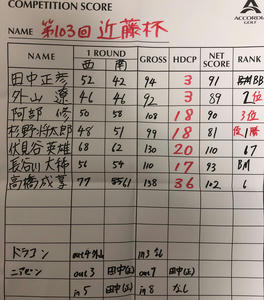 COMPETITION SCORE
ACCORDIA
GOLF
NAME 第103回 近藤杯
NAME 1 ROUND GROSS HDCP NET SCORE RANK
西 南
田中正彦 52 42 94 3 91
外山 遼 46 46 92 3 89 2位
阿部 修 50 58 108 18 90 3位
杉野将太郎 48 51 99 18 81 優勝
伏見谷 英雄 68 62 130 20 110 67
長谷川 大柿 56 54 110 17 93 BM
高橋成享 77 158 36 102 6
ドラコン out4 外山 in3 なし
ニアピン out3 田中(正) out7 田中(正)
in5 田中(正) in8 なし